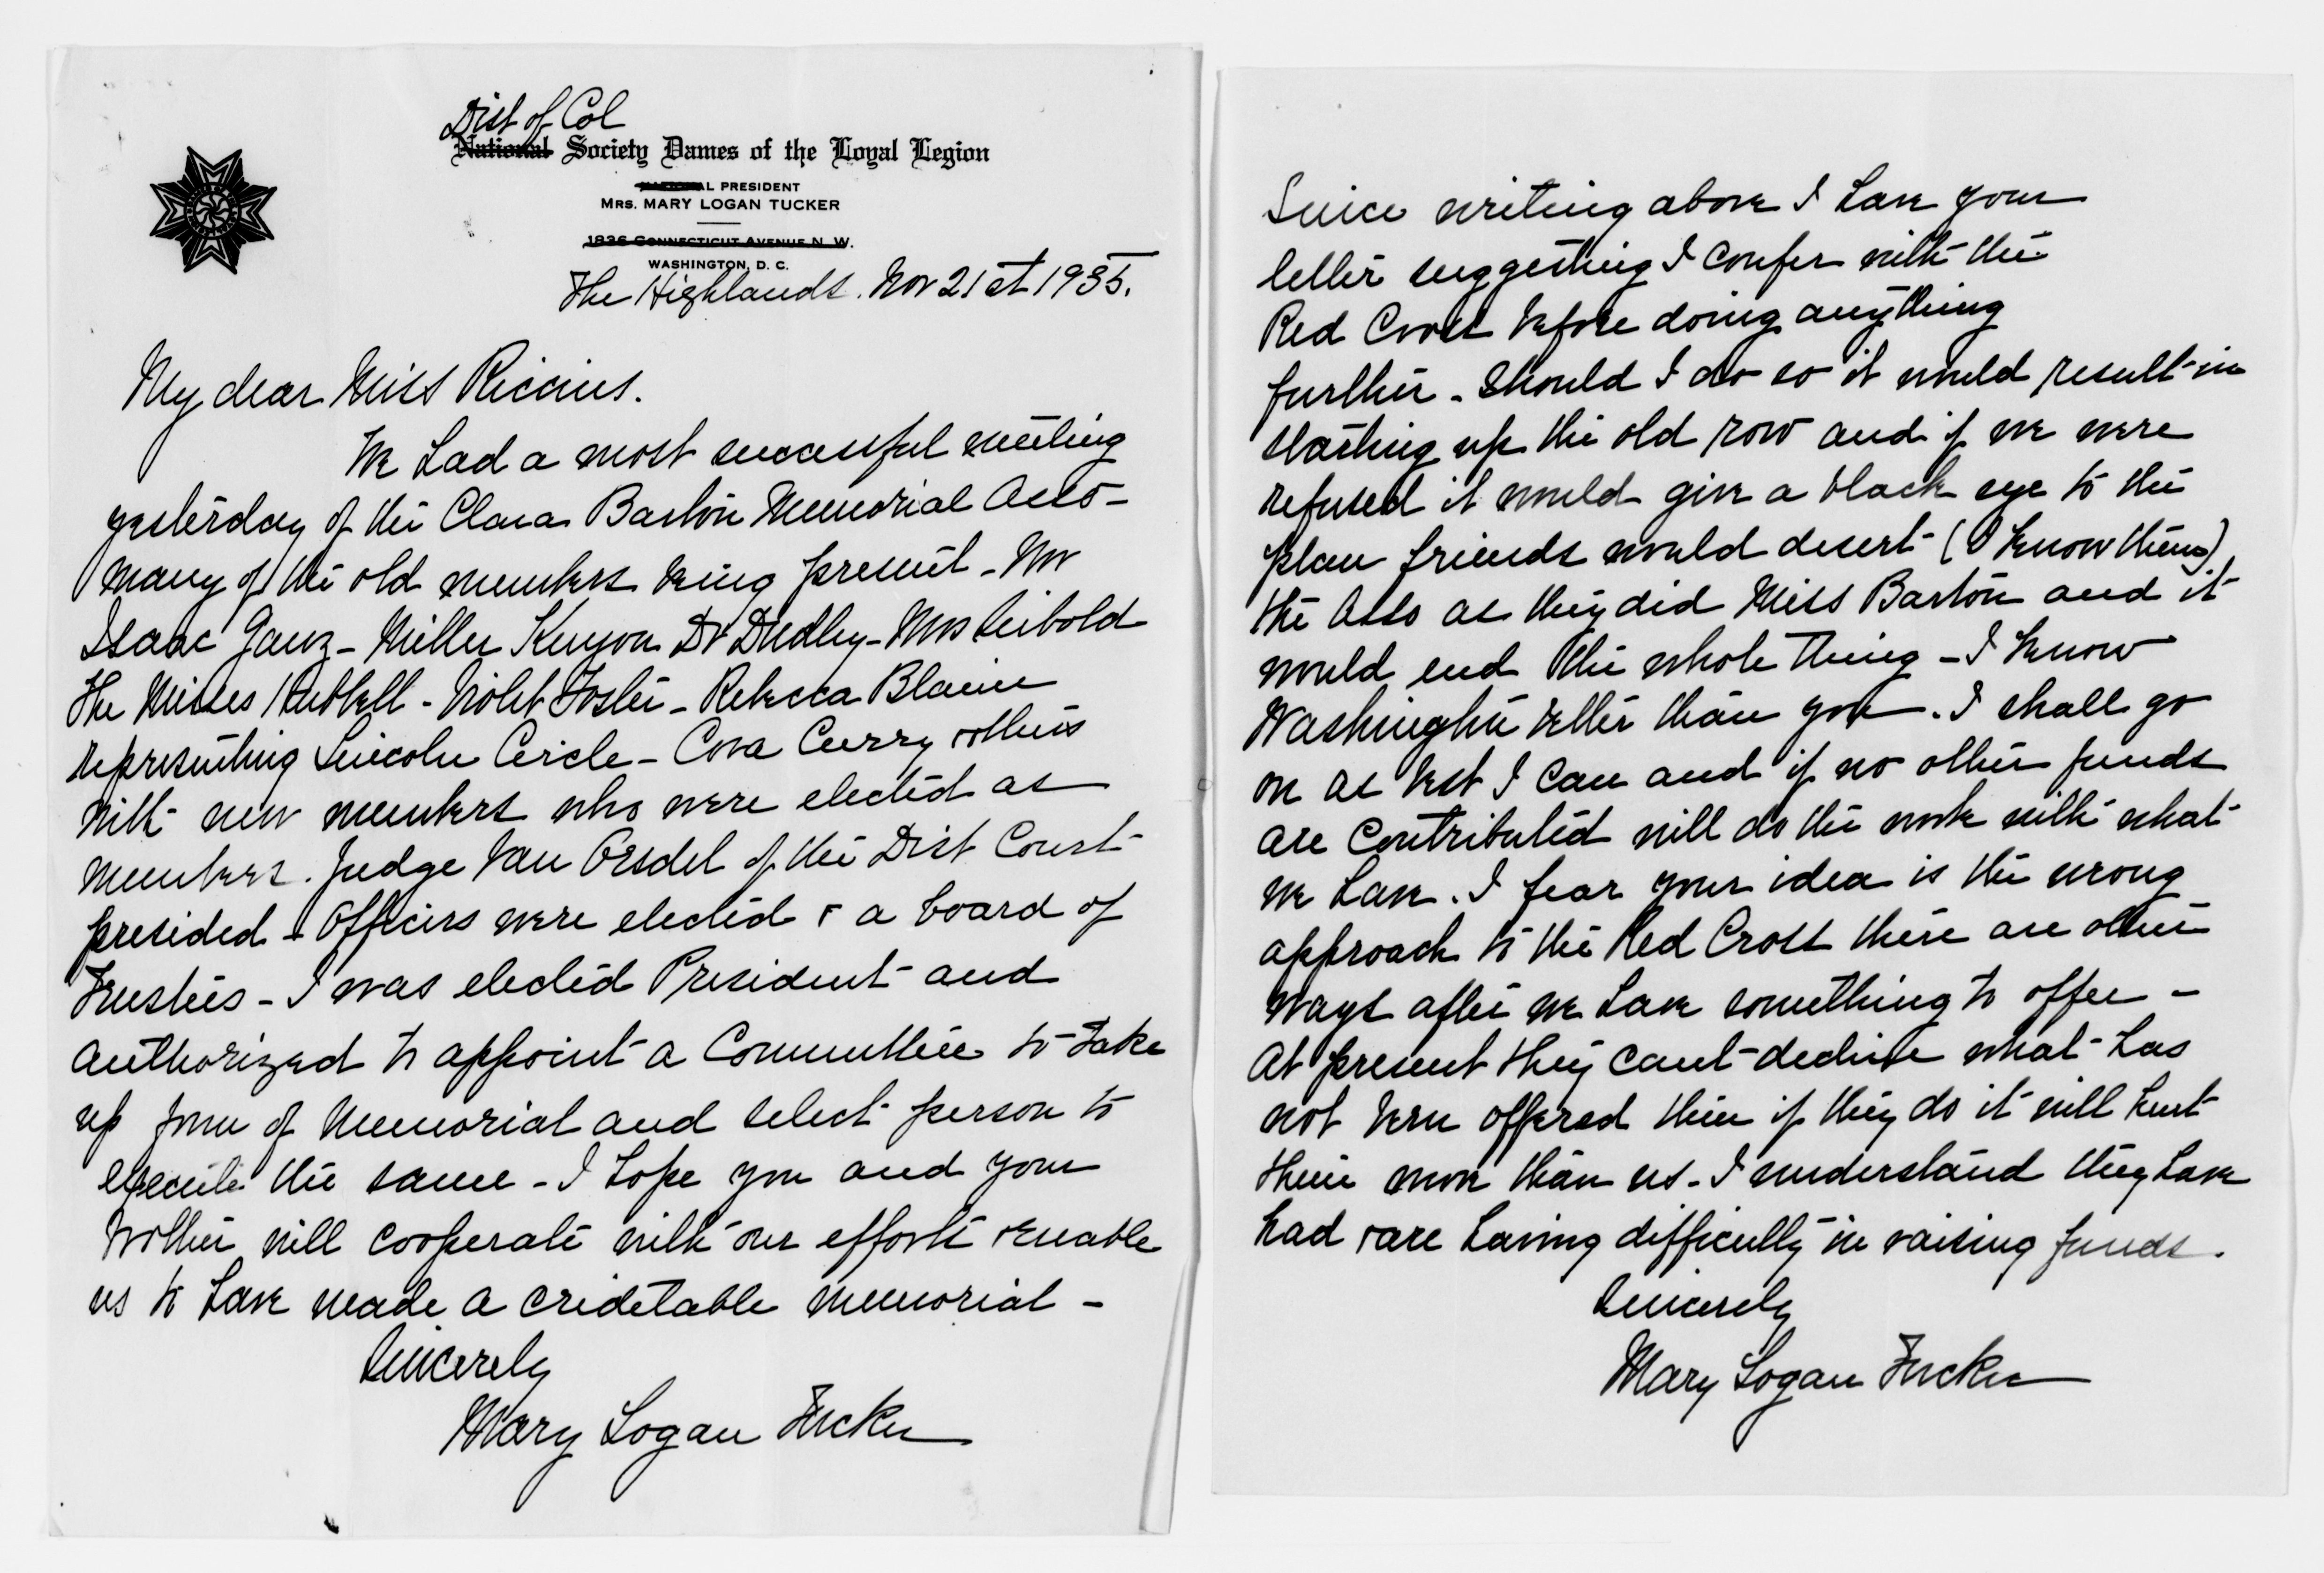 Dist of Col
National Society Dames of the Loyal Legion
NATIONAL PRESIDENT
MRS. MARY LOGAN TUCKER
1836 CONNECTICUT AVENUE N. W.
WASHINGTON, D. C.
The Highlands. Nov 21st 1935.
My dear Miss Riccius.
We had a most successful meeting
yesterday of the Clara Barton Memorial Asso-
many of the old members being present - Mr
Isaac Ganz - Miller Kenyon Dr Dudley - Mrs Seibold
The Misses Hubbell - Violet Foster - Rebecca Blaine
representing Lincoln Circle - Cora Curry & others
with new members who were elected as
members. Judge Van Orsdel of the Dist Court
presided - Officers were elected & a board of
Trustees - I was elected President and
authorized to appoint a Committee to take
up form of Memorial and select person to
execute the same - I hope you and your
brother will cooperate with our efforts & enable
us to have made a creditable memorial -
Sincerely
Mary Logan Tucker
Since writing above I have your
letter suggesting I confer with the
Red Cross before doing anything
further - Should I do so it would result in
starting up the old row and if we were
refused it would give a black eye to the
plan friends would desert (I know them)
the Asso as they did Miss Barton and it
would end the whole thing - I know
Washington better than you. I shall go
on as best I can and if no other funds
are contributed will do the work with what
we have. I fear your idea is the wrong
approach to the Red Cross there are other
ways after we have something to offer -
At present they cant decline what has
not been offered them if they do it will hurt
them more than us - I understand they have
had & are having difficulty in raising funds.
Sincerely
Mary Logan Tucker